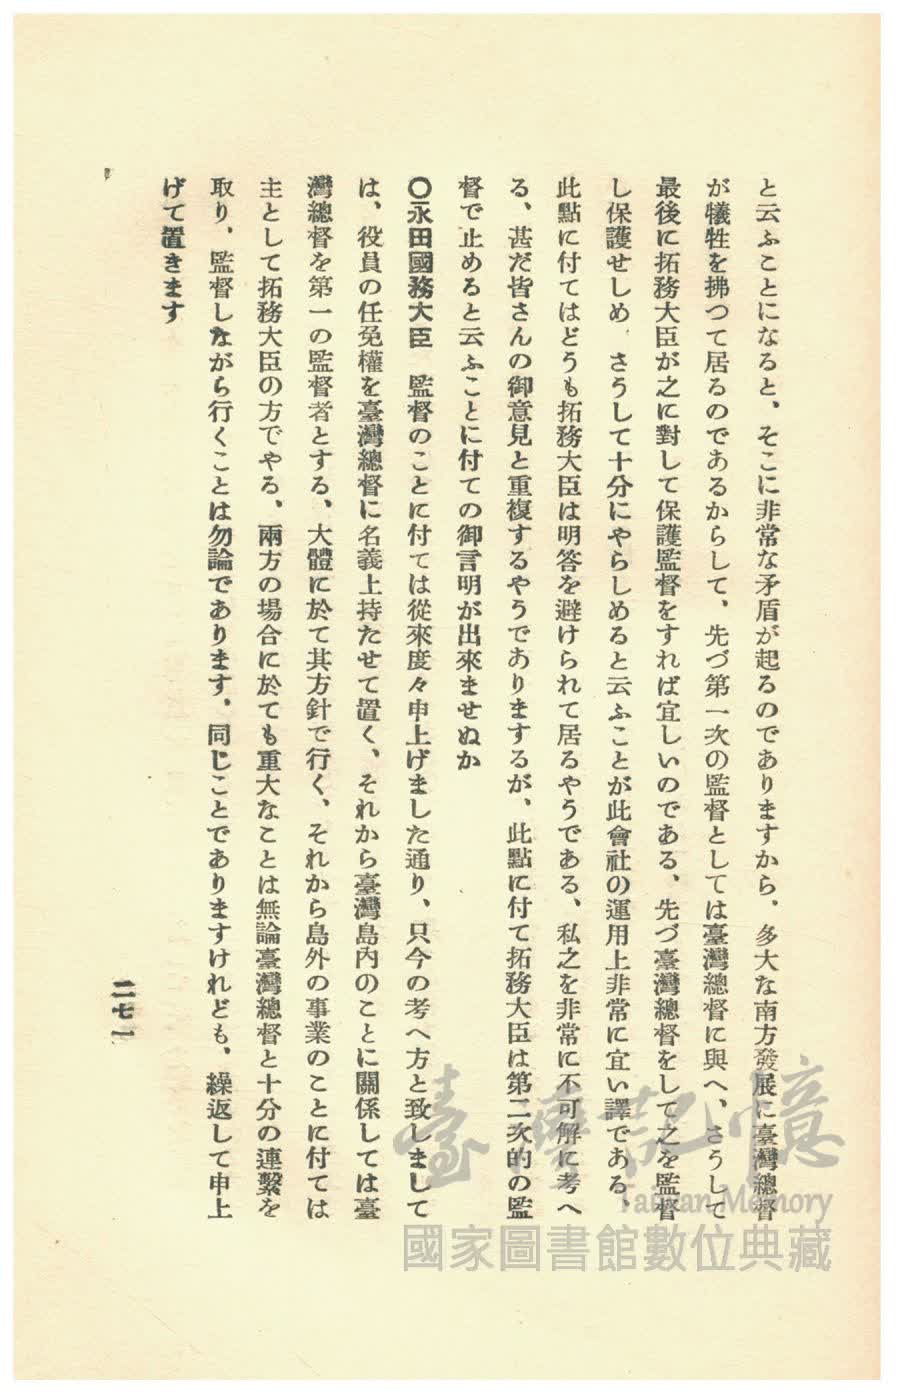 と云ふことになると、そこに非常な矛盾が起るのでありますから、多大な南方發展に臺灣總督
が犧牲を拂つて居るのであるからして、先づ第一次の監督としては臺灣總督に與へ、さうして
最後に拓務大臣が之に對して保護監督をすれば宜しいのである、先づ臺灣總督をして之を監督
し保護せしめ、さうして十分にやらしめると云ふことが此會社の運用上非常に宜い譯である、
此點に付てはどうも拓務大臣は明答を避けられて居るやうである、私之を非常に不可解に考へ
る、甚だ皆さんの御意見と重複するやうでありまするが、此點に付て拓務大臣は第二次的の監
督で止めると云ふことに付ての御言明が出來ませぬか
〇永田國務大臣　監督のことに付ては從來度々申上げました通り、只今の考へ方と致しまして
は、役員の任免權を臺灣總督に名義上持たせて置く、それから臺灣島內のことに關係しては臺
灣總督を第一の監督者とする、大體に於て其方針で行く、それから島外の事業のことに付ては
主として拓務大臣の方でやる、兩方の場合に於ても重大なことは無論臺灣總督と十分の連繫を
取り、監督しながら行くことは勿論であります、同じことでありますけれども、繰返して申上
げて置きます
二七一
臺灣記憶
Taiwan Memory
國家圖書館數位典藏